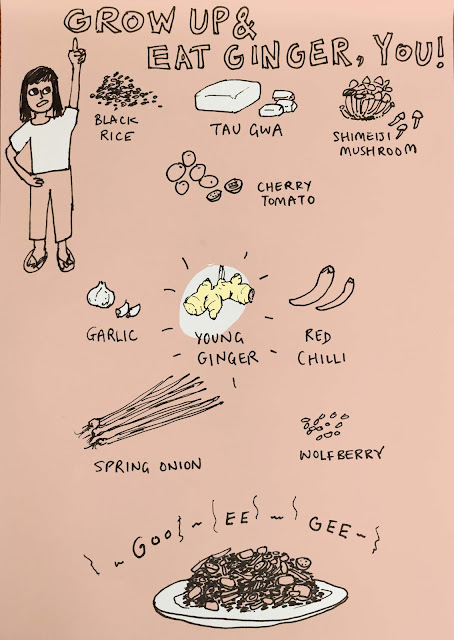 GROW UP &
EAT GINGER, YOU!
BLACK
RICE
TAU GWA
SHIMEIJI
MUSHROOM
CHERRY
TOMATO
GARLIC
YOUNG
GINGER
RED
CHILLI
SPRING ONION
WOLFBERRY
~ GOO ~ EE ~ GEE ~